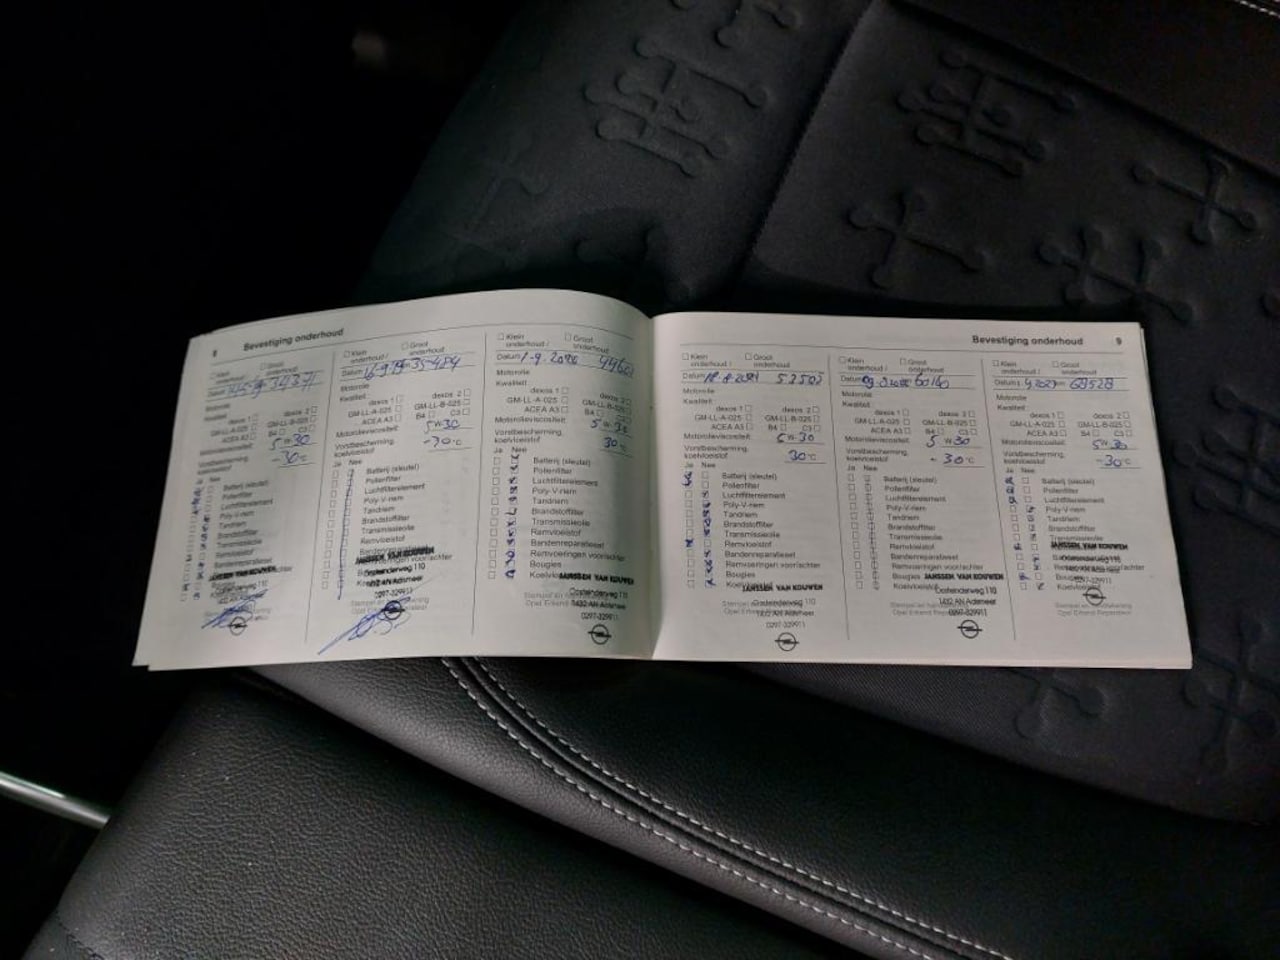 8
Bevestiging onderhoud
Klein onderhoud /
Groot onderhoud
Datum 34371
Motorolie
Kwaliteit:
dexos 1
dexos 2
GM-LL-A-025
GM-LL-B-025
ACEA A3
B4
C3
Motorolieviscositeit: 5W30
Vorstbescherming, koelvloeistof -30
Ja Nee
Batterij (sleutel)
Pollenfilter
Luchtfilterelement
Poly-V-riem
Tandriem
Brandstoffilter
Transmissieolie
Remvloeistof
JANSSEN VAN KOUWEN
Klein onderhoud /
Groot onderhoud
Datum 35484
Motorolie
Kwaliteit:
dexos 1
dexos 2
GM-LL-A-025
GM-LL-B-025
ACEA A3
B4
C3
Motorolieviscositeit: 5W30
Vorstbescherming, koelvloeistof -30°C
Ja Nee
Batterij (sleutel)
Pollenfilter
Luchtfilterelement
Poly-V-riem
Tandriem
Brandstoffilter
Transmissieolie
Remvloeistof
Bandenreparatieset
Remvoeringen voor/achter
JANSSEN VAN KOUWEN
Oosteinderweg 110
1432 AN Aalsmeer
0297-329911
Klein onderhoud /
Groot onderhoud
Datum 1-9-2020
Motorolie
Kwaliteit:
dexos 1
dexos 2
GM-LL-A-025
GM-LL-B-025
ACEA A3
B4
C3
Motorolieviscositeit: 5W30
Vorstbescherming, koelvloeistof 30°C
Ja Nee
Batterij (sleutel)
Pollenfilter
Luchtfilterelement
Poly-V-riem
Tandriem
Brandstoffilter
Transmissieolie
Remvloeistof
Bandenreparatieset
Remvoeringen voor/achter
Bougies
JANSSEN VAN KOUWEN
Oosteinderweg 110
1432 AN Aalsmeer
0297-329911
Bevestiging onderhoud
9
Klein onderhoud /
Groot onderhoud
Datum 52502
Motorolie
Kwaliteit:
dexos 1
dexos 2
GM-LL-A-025
GM-LL-B-025
ACEA A3
B4
C3
Motorolieviscositeit: 5W-30
Vorstbescherming, koelvloeistof 30°C
Ja Nee
Batterij (sleutel)
Pollenfilter
Luchtfilterelement
Poly-V-riem
Tandriem
Brandstoffilter
Transmissieolie
Remvloeistof
Bandenreparatieset
Remvoeringen voor/achter
Bougies
JANSSEN VAN KOUWEN
Oosteinderweg 110
1432 AN Aalsmeer
0297-329911
Klein onderhoud /
Groot onderhoud
Datum 60160
Motorolie
Kwaliteit:
dexos 1
dexos 2
GM-LL-A-025
GM-LL-B-025
ACEA A3
B4
C3
Motorolieviscositeit: 5W30
Vorstbescherming, koelvloeistof -30°C
Ja Nee
Batterij (sleutel)
Pollenfilter
Luchtfilterelement
Poly-V-riem
Tandriem
Brandstoffilter
Transmissieolie
Remvloeistof
Bandenreparatieset
Remvoeringen voor/achter
Bougies
JANSSEN VAN KOUWEN
Oosteinderweg 110
1432 AN Aalsmeer
0297-329911
Klein onderhoud /
Groot onderhoud
Datum 68528
Motorolie
Kwaliteit:
dexos 1
dexos 2
GM-LL-A-025
GM-LL-B-025
ACEA A3
B4
C3
Motorolieviscositeit: 5W30
Vorstbescherming, koelvloeistof -30°C
Ja Nee
Batterij (sleutel)
Pollenfilter
Luchtfilterelement
Poly-V-riem
Tandriem
Brandstoffilter
Transmissieolie
JANSSEN VAN KOUWEN
Oosteinderweg 110
1432 AN Aalsmeer
0297-329911